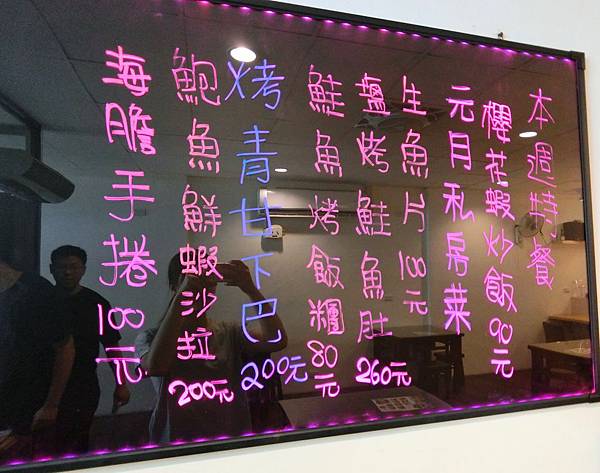 本週特餐
櫻花蝦炒飯90元
元月私房菜
生魚片100元
鹽烤鮭魚肚260元
鮭魚烤飯糰80元
烤青甘下巴200元
鮑魚鮮蝦沙拉200元
海膽手捲100元